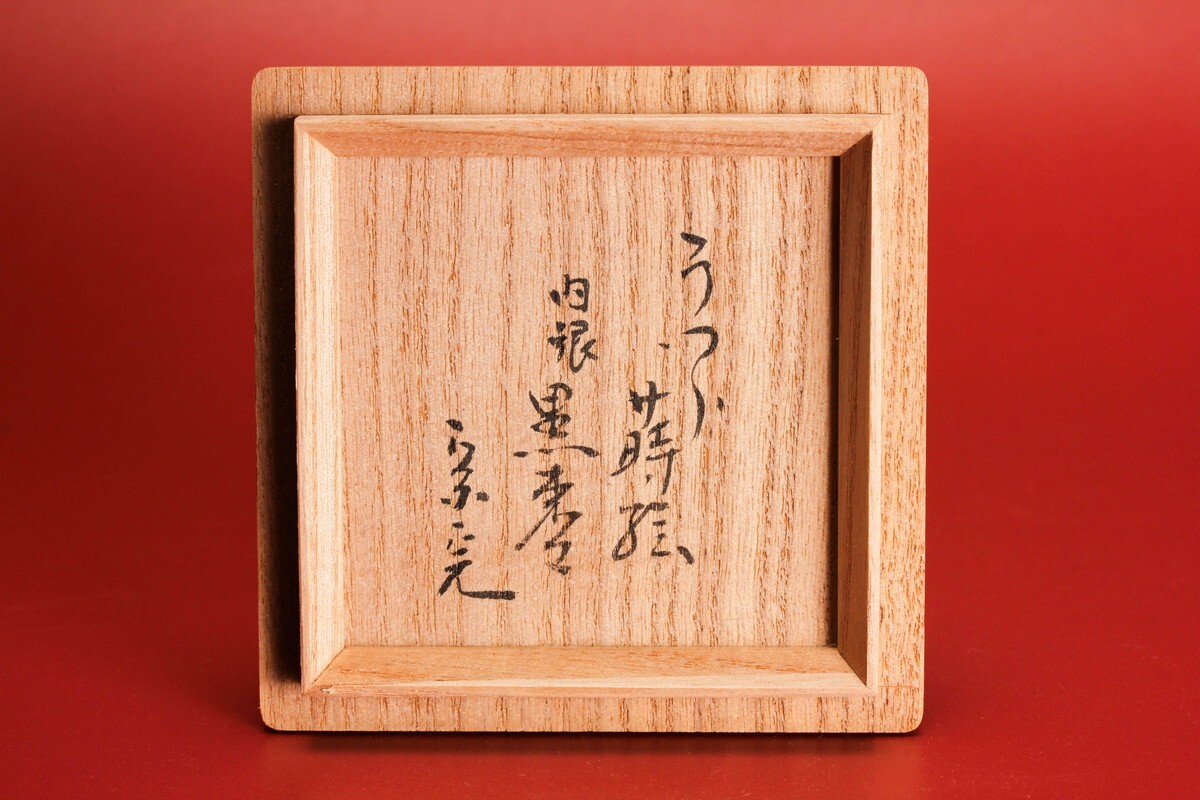 うつら
蒔絵
内銀
黒棗
宗